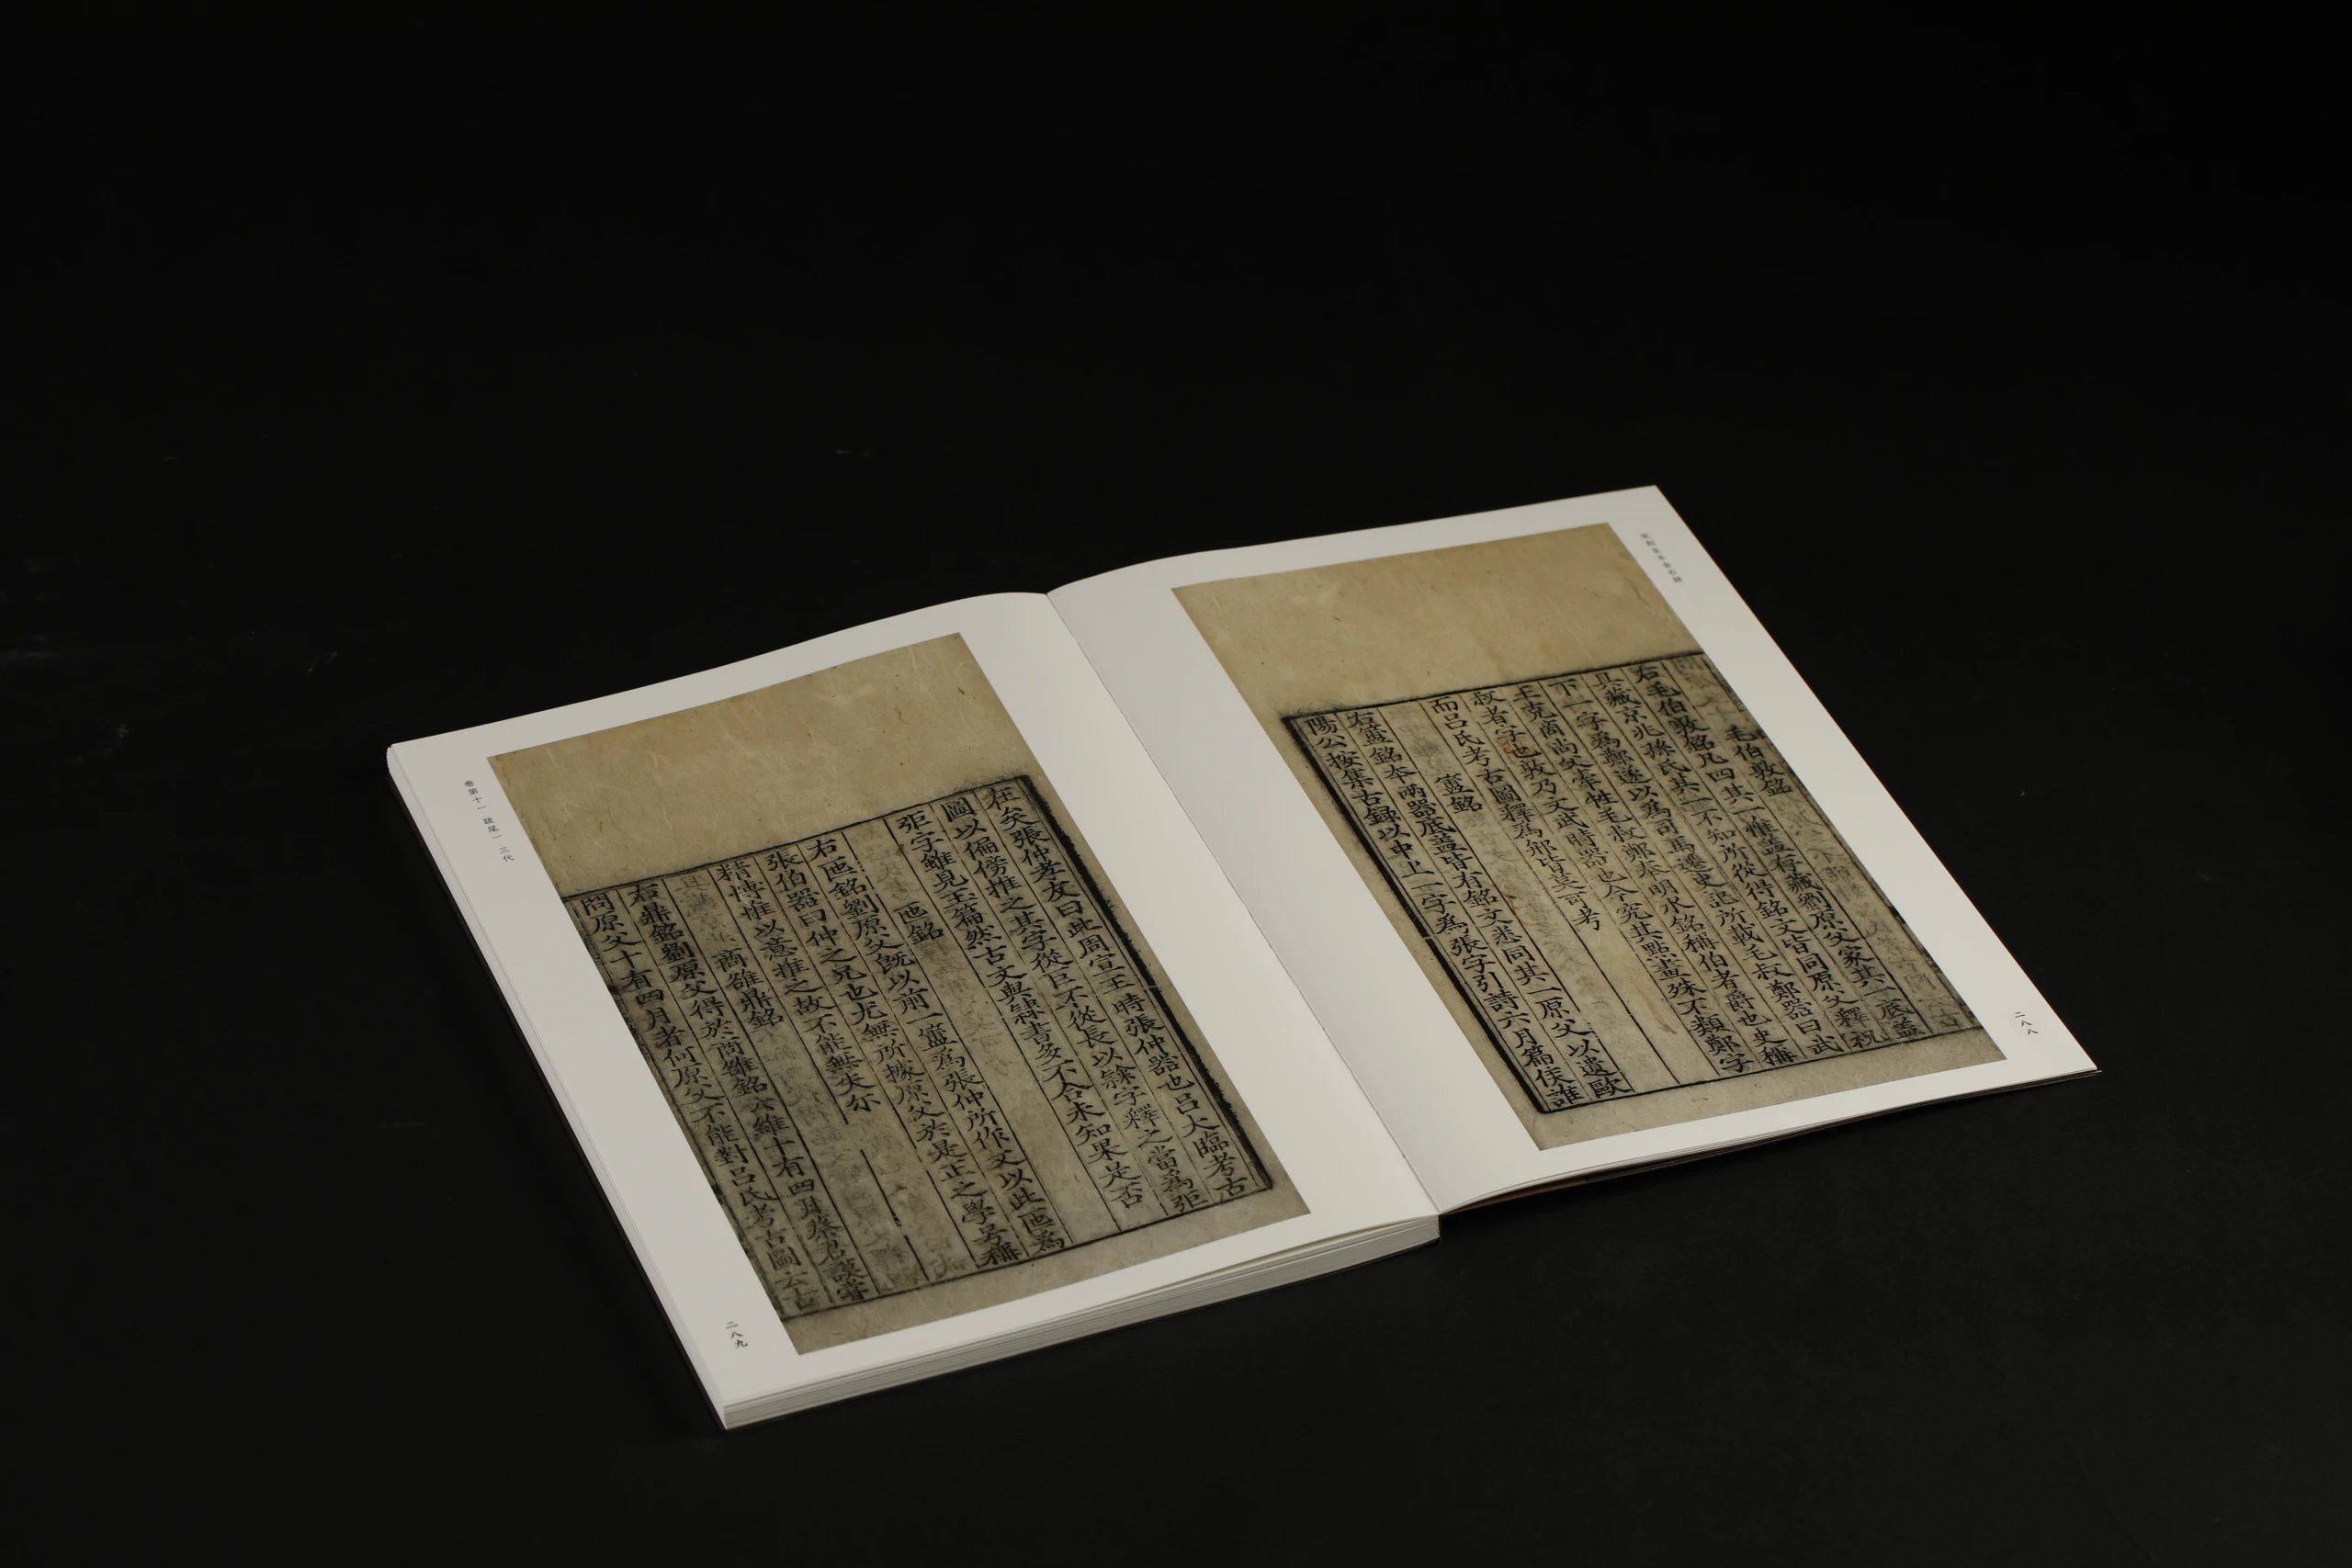 宋刻全本金石錄
毛伯敦銘
右毛伯敦銘凡四其一惟蓋存藏劉原父家其一底蓋
具藏京兆孫氏其二不知所從得銘文皆同原父釋祝
下一字爲鄭遂以爲司馬遷史記所載毛叔鄭器曰武
王克商尚父牽牲毛叔鄭奉明水銘稱伯者爵也史稱
叔者字也敦乃文武時器也今究其點畫殊不類鄭字
而呂氏考古圖釋爲䢵皆莫可考
簠銘
右簠銘本兩器底蓋皆有銘文悉同其一原父以遺歐
陽公按集古録以中上一字爲張字引詩六月篇侯誰
二八八
在矣張仲孝友曰此周宣王時張仲器也呂大臨考古
圖以偏傍推之其字從巨不從長以隸字釋之當爲弡
弡字雖見玉篇然古文與隸書多不合未知果是否
匜銘
右匜銘劉原父旣以前一簠爲張仲所作又以此匜爲
張伯器曰仲之兄也尤無所據原父於是正之學号稱
精博惟以意推之故不能無失尔
商雒鼎銘
右鼎銘劉原父得於商雒銘云維十有四月蔡君謨嘗
問原父十有四月者何原父不能對呂氏考古圖云古
卷第十一 跋尾一 三代
二八九